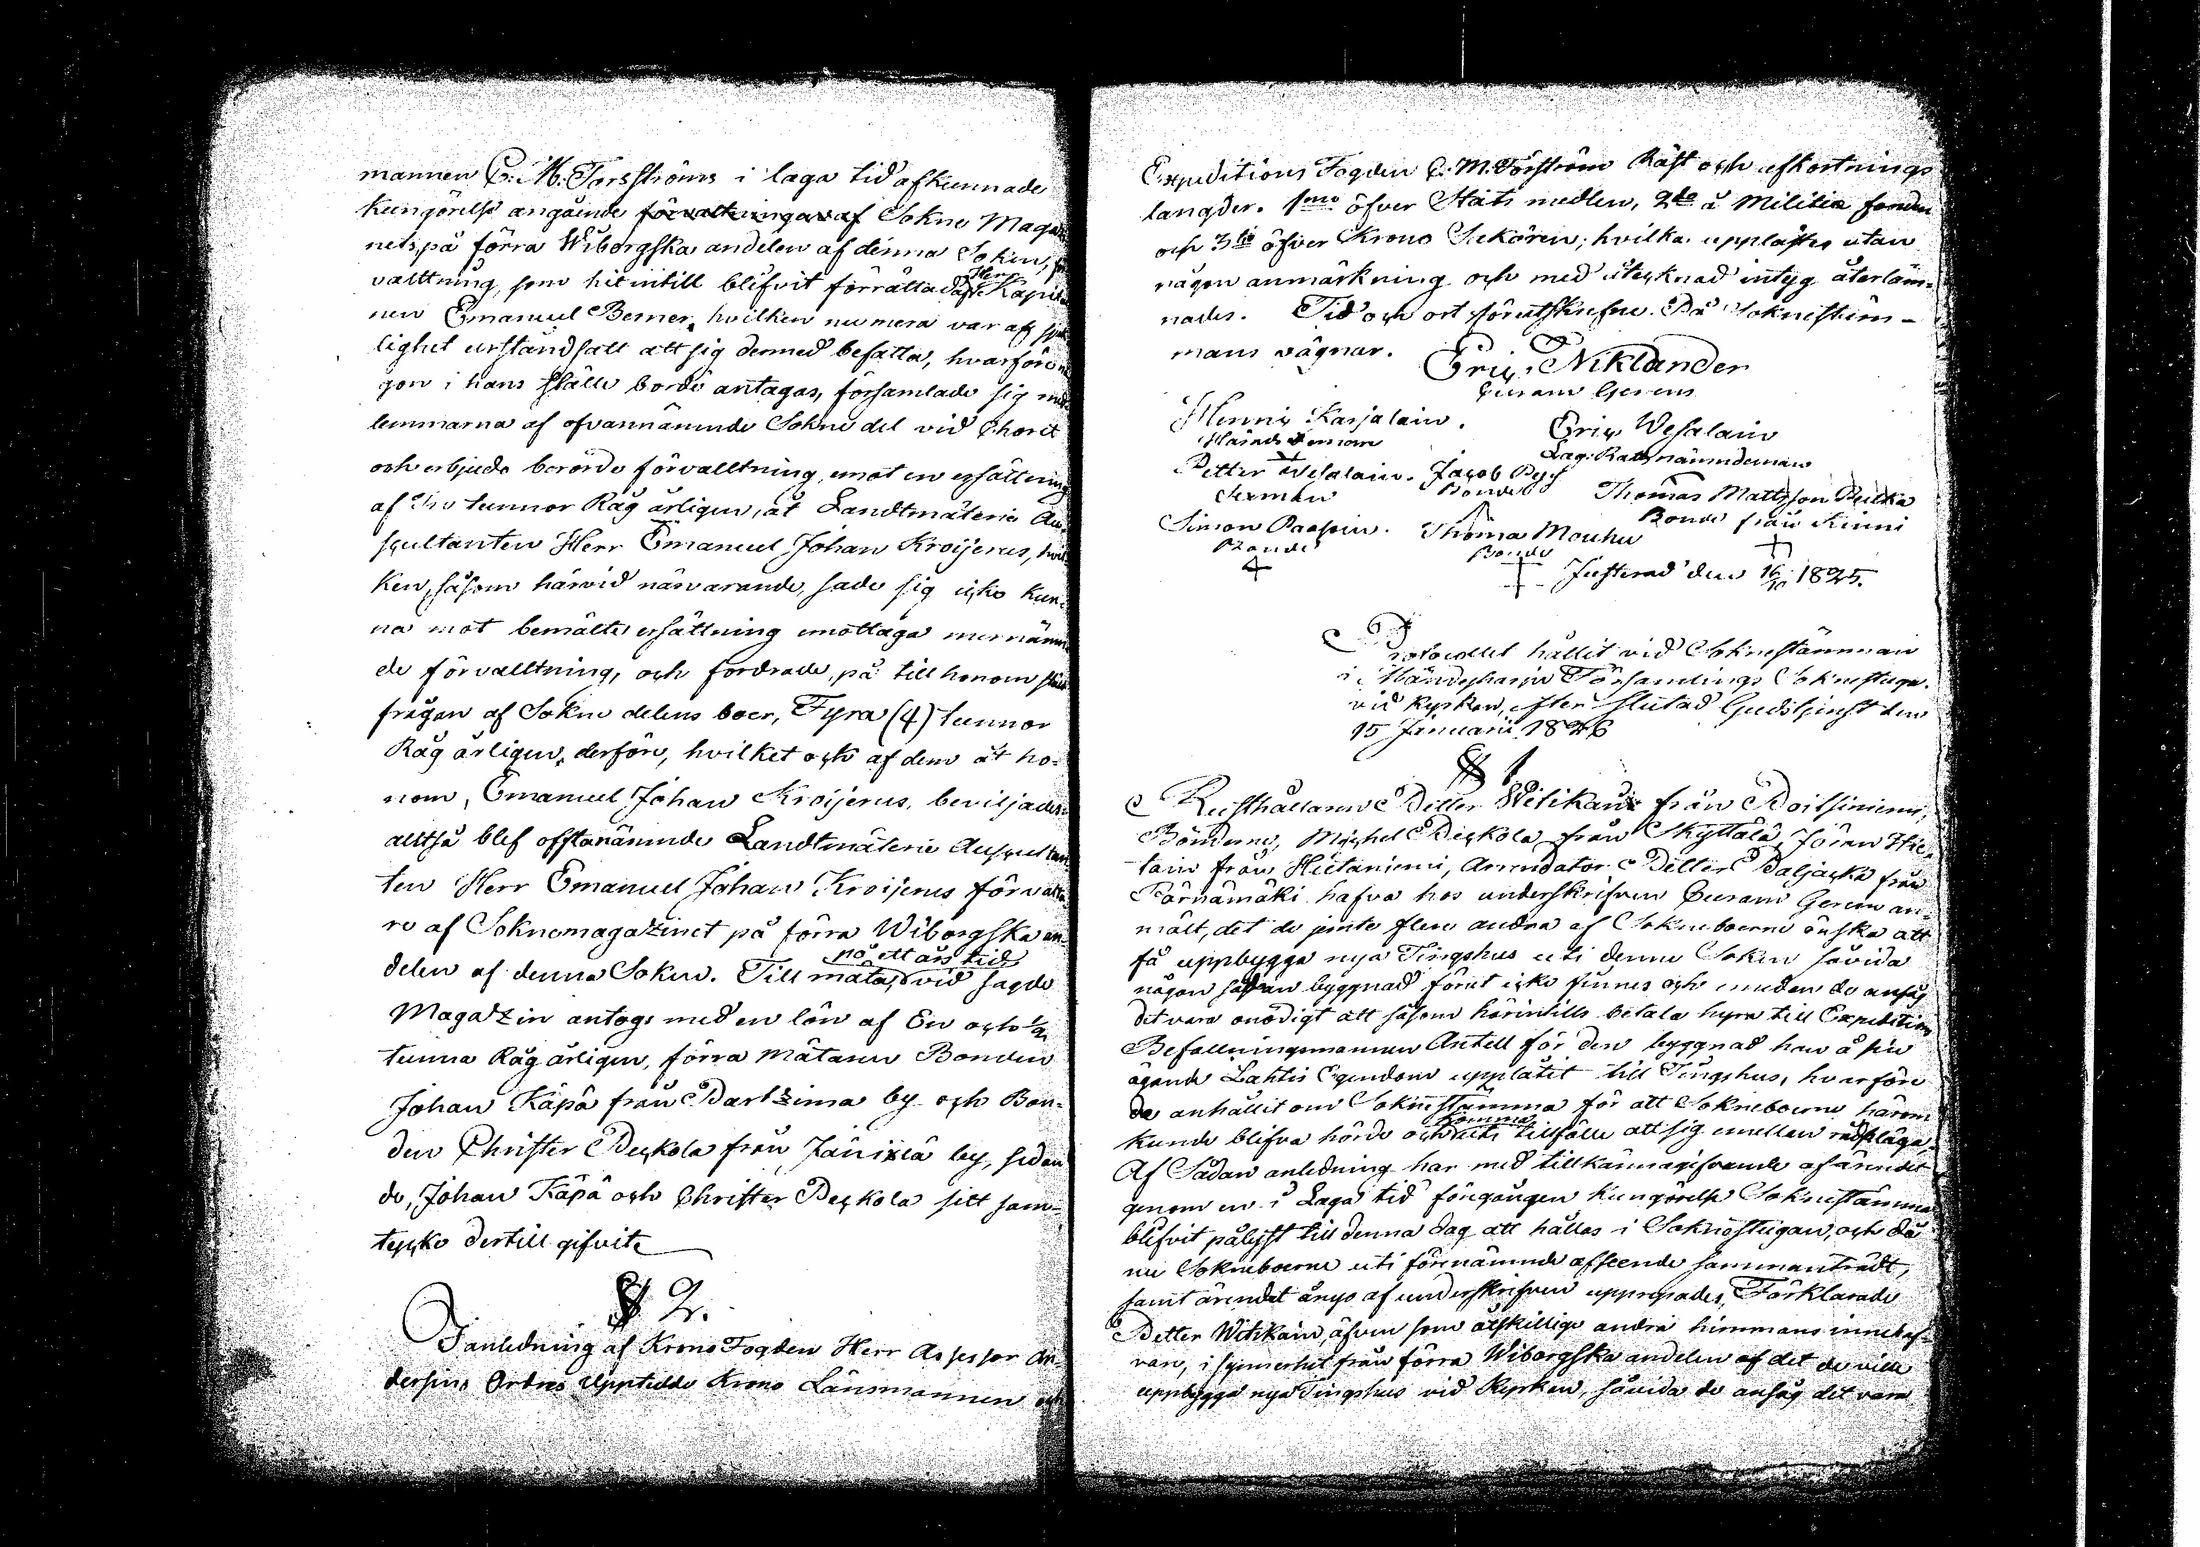 mannen C. M. Forsströms i laga tid afkunnade
kungörelse angående förvaltningen af Sokne Maga
nets, på förra Wiborgska andelen af denna Soken,
valttning, som hitintill blifvit förrättad af Herr Kapite
nen Emanuel Berner, hvilken numera var af sjuk
lighet urståndsatt att sig dermed befatta, hvarföre nå
gon i hans ställe borde antagas, församlade sig med
lemmarna af ofvannämnde Sokne del vid Choret
och erbjudo berörde förvalltning, emot en ersättning
af Tre tunnor Råg årligen, åt Landtmäterie Au
scultanten Herr Emanuel Johan Kroijerus, hvil
ken, såsom härvid närvarande, sade sig icke kun
na mot bemälte ersättning emottaga mernämn
de förvalltning, och fordrade, på till honom ställd
frågan af Sokne delens boer, Fyra (4) tunnor
Råg årligen, derföre, hvilket och af dem åt ho-
nom, Emanuel Johan Kroijerus, beviljades
alltså blef offtanämnde Landtmäterie Auscultan
ten Herr Emanuel Johan Kroijerus förvalta
re af Soknemagazinet på förra Wiborgska an-
delen af denna Soken. Till mätare på ett års tid vid sagde
Magazin antogs med en lön af En och 1/2
tunna Råg årligen, förra Mätaren Bonden
Johan Käpä från Partzima by och Bon-
den Christer Peckola från Jänixiä by, sedan
de, Johan Käpä och Christer Peckola sitt sam-
tycke dertill gifvit.
§ 2.
I anledning af Krono Fogden Herr Assessor An-
dersins Ordres upptedde Krono Länsmannen och
Expeditions Fogden C. M. Forsström Räst och afkortnings
langder. 1mo öfver Stats medlen, 2do å Militie fonden
och 3tio öfver Krono Sakören; hvilka upplästes utan
någon anmärkning och med åtecknad intyg återläm-
nades. Tid och ort förutskrefne. På Soknestäm-
mans vägnar.
Eric Niklander
Curam Gerens
Henric Karjalain.
Häradsdeman
Eric Wesalain
Lag. Rätt nämndeman
Petter Wesalain. Jacob
Sexman Bonde
Thomas Mattsson Pulka
Bonde från Kinni
Simon Paasoin. Thoma Mouhu
Bonde Bonde
Justerad den 16/10 1825.
Protocollet hållit vid Soknestämman
i Mändyharju Församlings Soknestuga
vid kyrkan, efter slutad Gudstjenst den
15 Januarii 1826
§ 1
Rusthållaren Petter Witikain från Poitsiniemi,
Bönderne, Michel Peckola från Skyttälä, Jöran Hie-
tain från Hietaniemi, Arrendator Petter Paljacka från
Pärnämäki hafva hos underskrifven Curam Gerens an-
mält, det de jemte flere andra af Sokneboerne önska att
få uppbygga nya Tingshus uti denne Soken såvida
någon sådan byggnad förut icke finnes och emedan de anse
det vara onödigt att såsom härintills betala hyra till Expeditions
Befallningsmannen Antell för den byggnad han å sin
ägande Lahtis Egendom upplåtit till Tingshus, hvarföre
de anhållit om Soknestämma för att Sokneboerne härom
kunde blifva hörde och komma uti tillfälle att sig emellan rådpläga,
Af Sådan anledning har med tillkännagifvande af ärendet
genom en i Laga tid föregången kungörelse Soknestämma
blifvit pålyst till denna dag att hållas i Soknestugan, och då
nu Sokneboerne uti förenämnde afseende sammanträdt,
samt ärendet ånyo af underskrifven upprepades, Förklarade
Petter Witikain, äfven som åtskillige andra hemmans innehaf-
vare, i synnerhet från förra Wiborgska andelen af det de ville
uppbygga nya Tingshus vid Kyrkan, såvida de ansåg det vara